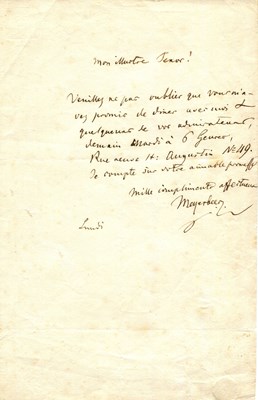 Mon illustre Tenor!
Veuillez ne pas oublier que vous m'a-
vez promis de diner avec moi &
quelques uns de vos admirateurs,
demain Mardi à 6 heures,
Rue neuve St: Augustin No 49.
Je compte sur votre aimable promesse
Mille compliments affectueux
Meyerbeer
Lundi